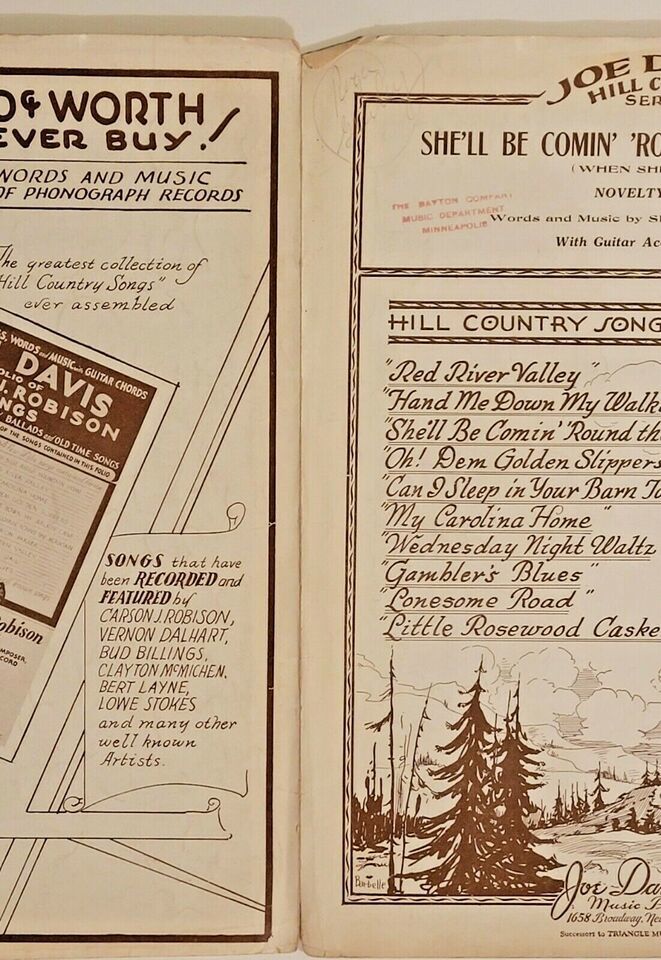 WORTH
EVER BUY!
WORDS AND MUSIC
OF PHONOGRAPH RECORDS
The greatest collection of
Hill Country Songs"
ever assembled
WORDS and MUSIC with GUITAR CHORDS
DAVIS
FOLIO OF
J. ROBISON
SONGS
BALLADS and OLD TIME SONGS
OF THE SONGS CONTAINED IN THIS FOLIO
Robison
COMPOSER
RECORD
SONGS that have
been RECORDED and
FEATURED by
CARSON J. ROBISON,
VERNON DALHART,
BUD BILLINGS,
CLAYTON McMICHEN,
BERT LAYNE,
LOWE STOKES
and many other
well known
Artists.
JOE D
HILL C
SER
SHE'LL BE COMIN' 'RO
(WHEN SHE
NOVELTY
THE DAYTON COMPANY
MUSIC DEPARTMENT
MINNEAPOLIS
Words and Music by S
With Guitar Ac
HILL COUNTRY SONG
"Red River Valley"
"Hand Me Down My Walk
"She'll Be Comin' 'Round th
"Oh! Dem Golden Slippers
"Can I Sleep in Your Barn To
"My Carolina Home"
"Wednesday Night Waltz
"Gambler's Blues"
"Lonesome Road"
"Little Rosewood Caske
Barbelle
Joe Da
Music P
1658 Broadway, Ne
Successors to TRIANGLE MU